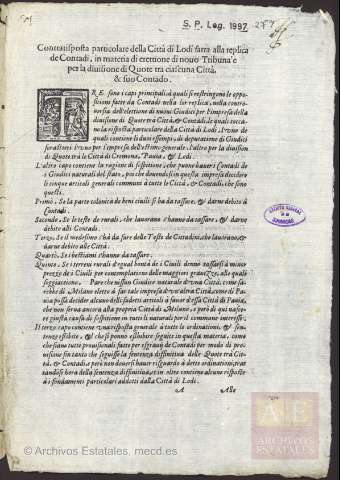 S. P. Leg. 1997
Contrarisposta particolare della Città di Lodi fatta alla replica
de Contadi, in materia di erettione di nouo Tribunale
per la diuisione di Quote tra ciascuna Città,
& suo Contado.
TRE sono i capi principali, à quali si restringono le oppo-
sitioni fatte da Contadi nella lor replica, nella contro-
uersia dell'erettione di nuoui Giudici per l'impresa della
diuisione di Quote trà Città, & Contadi, le quali tocca-
no la risposta particolare della Città di Lodi, l'vno de
quali contiene li duoi essempi, di deputatione di Giudici
forastieri: l'vno per l'impresa dell'estimo generale, l'altro per la diuision
di Quote trà le Città di Cremona, Pauia, & Lodi.
L'altro capo contiene la ragione di sospitione, che puono hauere i Contadi de
i Giudici naturali del stato, poi che douendosi in questa impresa decidere
li cinque articoli generali communi à tutte le Città, & Contadi, che sono
questi.
Primo, Se la parte colonica de beni ciuili si hà da tassare, & darne debito à
Contadi.
Secondo, Se le teste de rurali, che laurano s'hanno da tassare, & darne
debito alli Contadi.
Terzo, Se il medesimo s'hà da fare delle Teste de Cittadini, che laurano, &
darne debito alle Città.
Quarto, Se i bestiami s'hanno da tassare.
Quinto, Se i terreni rurali d'egual bontà de i Ciuili denno tassarsi à minor
prezzo de i Ciuili per contemplatione delle maggiori grauezze, alle quali
soggiacciono. Pare che nissun Giudice naturale d'vna Città, come sa-
rebbe di Milano eletto à far tale impresa d'vn'altra Città, come di Pa-
uia possa decider alcuno delli sudetti articoli à fauor d'essa Città di Pauia,
che non serua ancora alla propria Città di Milano, e però di quì nasce
per giusta causa di sospitione in tutti li naturali per il commune interesse.
Il terzo capo contiene vna risposta generale à tutte le ordinationi, & sen-
tenze essibite, & che si ponno essibire seguite in questa materia, come
che siano tutte prouisionali fatte per essgrauij de Contadi per modo di pro-
uisione sin tanto che seguisse la sentenza diffinitiua delle Quote trà Cit-
tà, & Contadi, e però non douersi hauer risguardo à dette ordinationi, trat-
tandosi hora della sentenza diffinitiua, e in oltre contiene alcune risposte
à i fondamenti particolari addotti dalla Città di Lodi.
A
Alle
ARCHIVO GENERAL
DE
SIMANCAS
AE
ARCHIVOS
ESTATALES
© Archivos Estatales, mecd.es